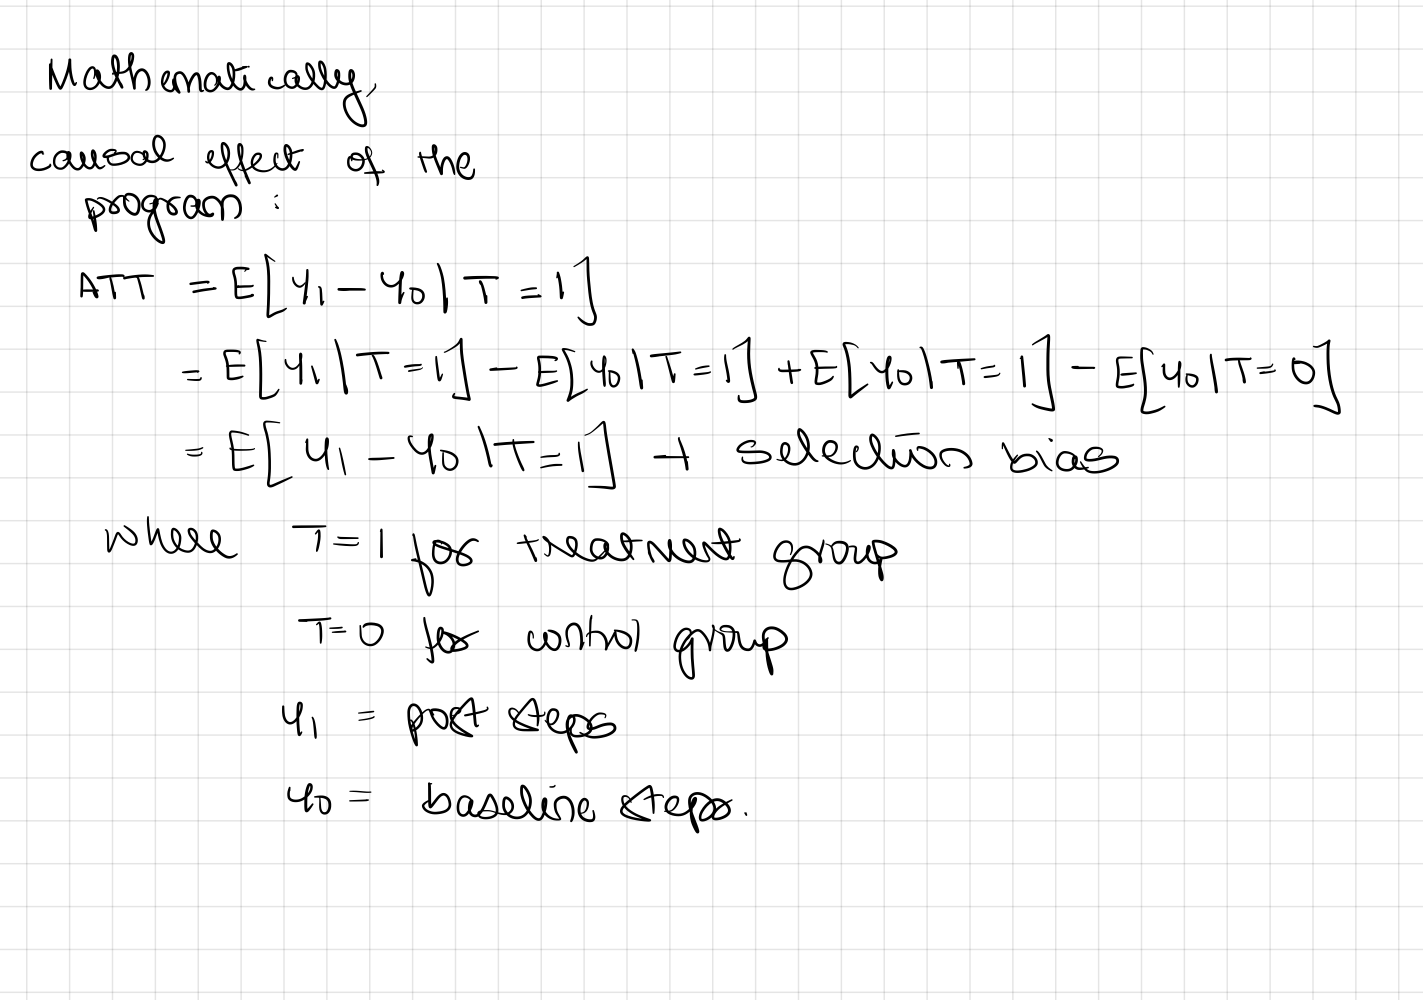 Mathematically,
causal effect of the
program:
ATT = E[Y₁ - Y₀ | T = 1]
= E[Y₁ | T = 1] - E[Y₀ | T = 1] + E[Y₀ | T = 1] - E[Y₀ | T = 0]
= E[Y₁ - Y₀ | T = 1] + selection bias
where T = 1 for treatment group
T = 0 for control group
Y₁ = post steps
Y₀ = baseline steps.